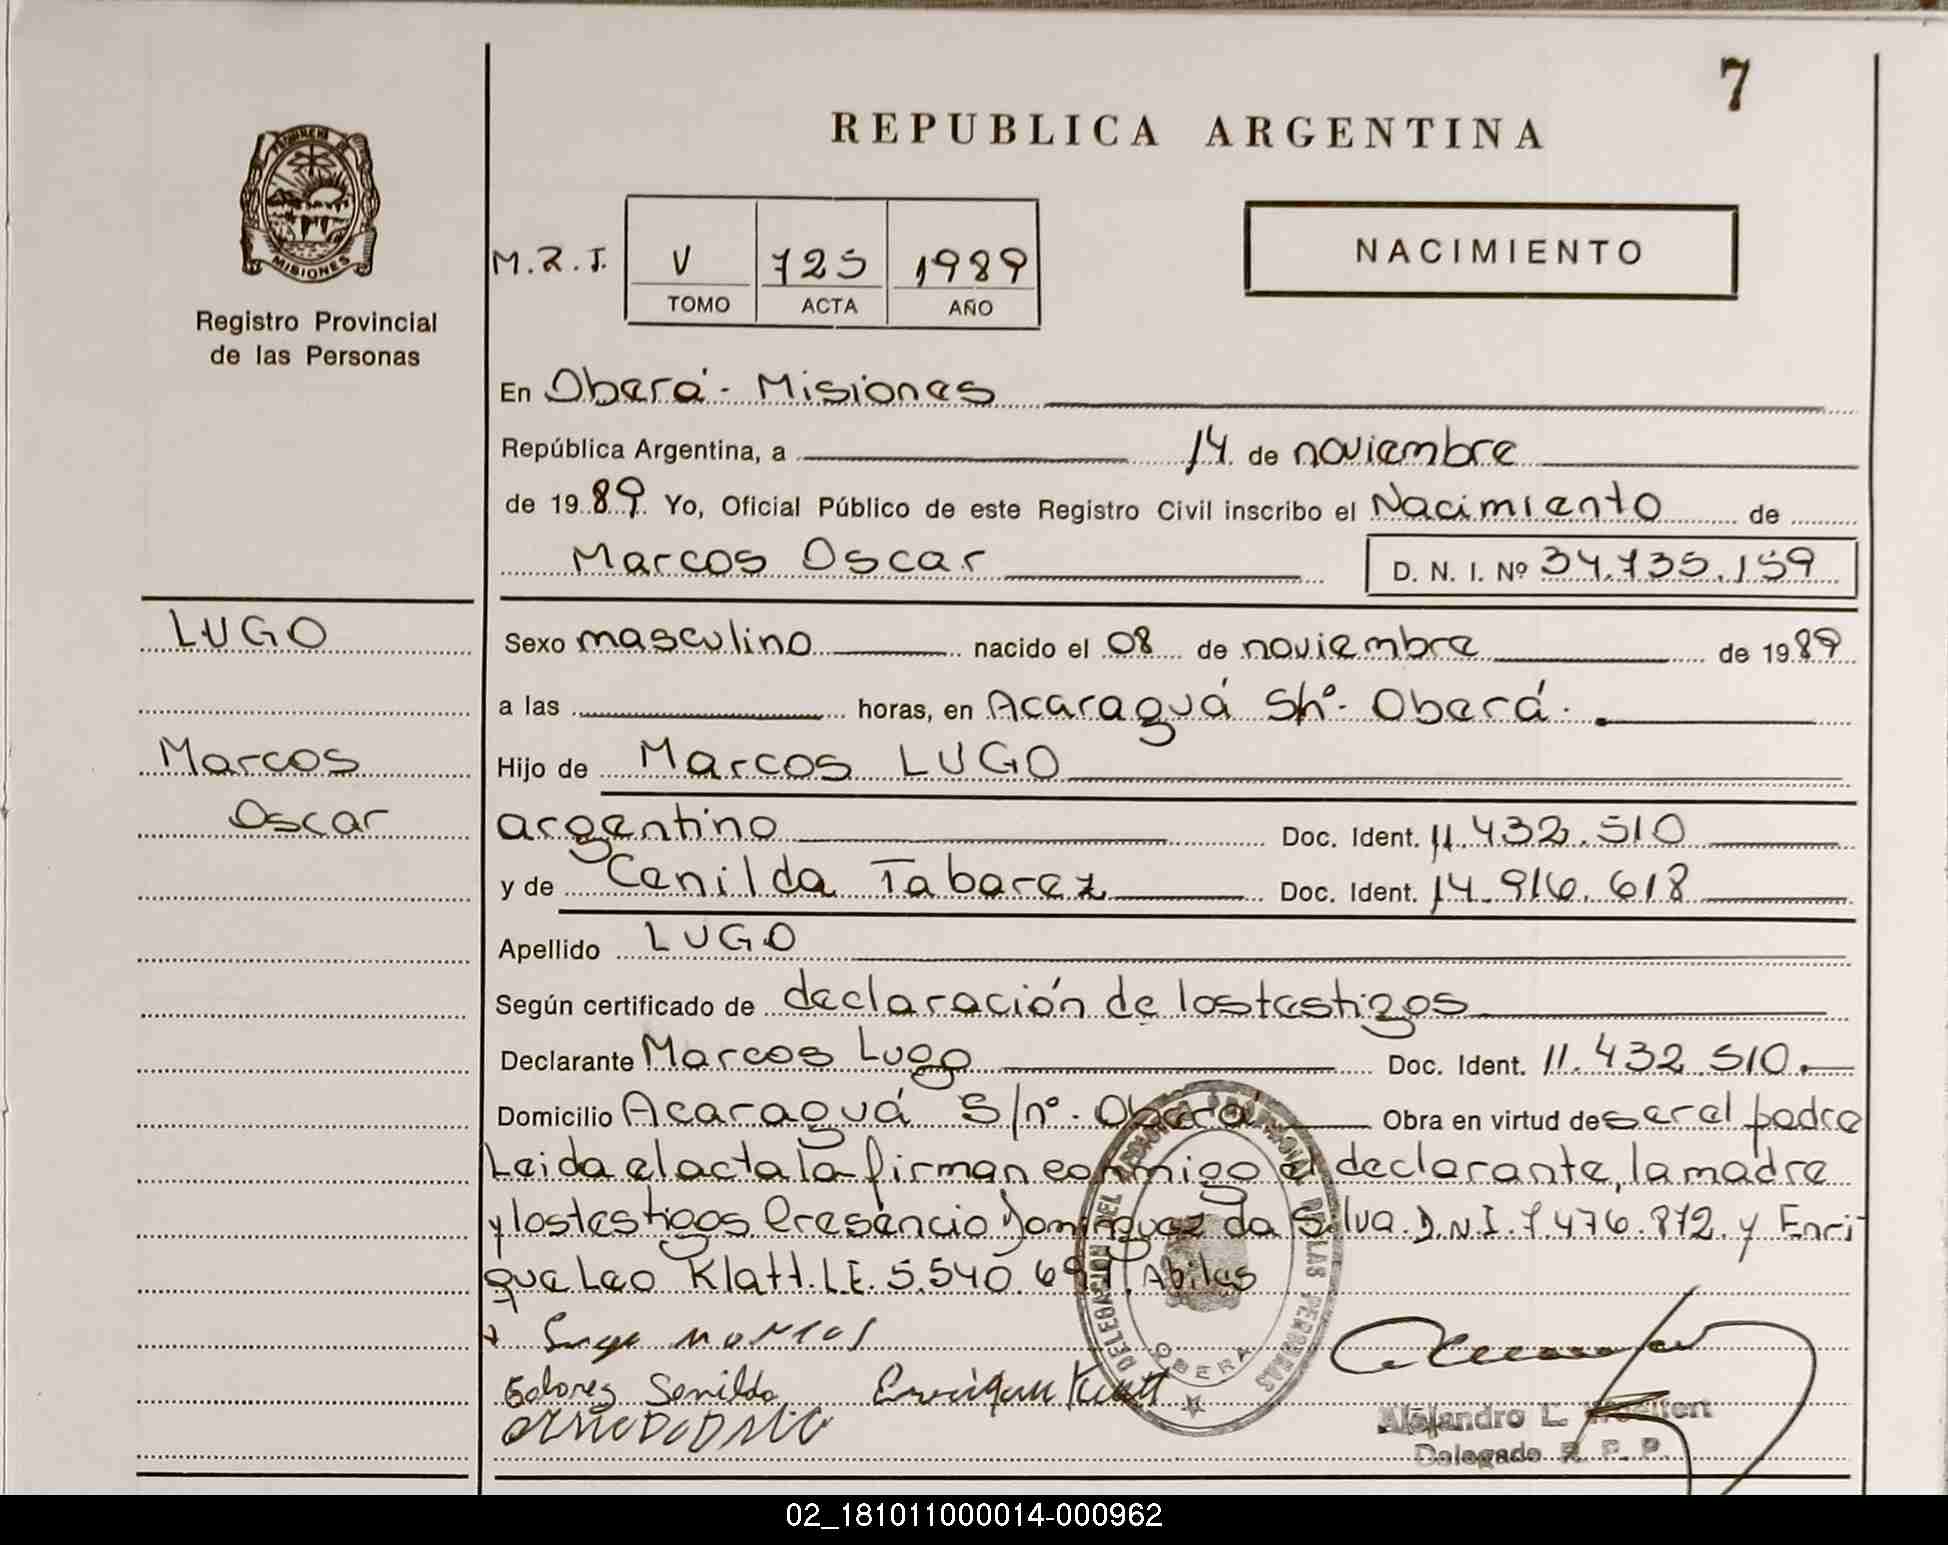 7
REPUBLICA ARGENTINA
PROVINCIA DE
MISIONES
Registro Provincial
de las Personas
NACIMIENTO
M.R.I.
V 725 1989
TOMO ACTA AÑO
En Oberá - Misiones
República Argentina, a 14 de noviembre
de 1989 Yo, Oficial Público de este Registro Civil inscribo el Nacimiento de
Marcos Oscar D. N. I. Nº 34.735.159
LUGO
Marcos
Oscar
Sexo masculino nacido el 08 de noviembre de 1989
a las horas, en Acaraguá S/nº - Oberá.
Hijo de Marcos LUGO
argentino Doc. Ident. 11.432.510
y de Cenilda Tabarez Doc. Ident. 14.916.618
Apellido LUGO
Según certificado de declaración de los testigos
Declarante Marcos Lugo Doc. Ident. 11.432.510.
Domicilio Acaraguá S/nº - Oberá Obra en virtud de ser el padre
Leida el acta la firman conmigo el declarante, la madre
y los testigos Presencio Dominguez da Silva. D.N.I. 7.476.872. y Enri
que Leo Klatt. L.E. 5.540.697. Abiles
Lugo Marcos
Senilda Enrique Klatt
DELEGACION DEL REGISTRO PROVINCIAL DE LAS PERSONAS
OBERA
Alejandro L.
Delegado R. P. P.
02_181011000014-000962